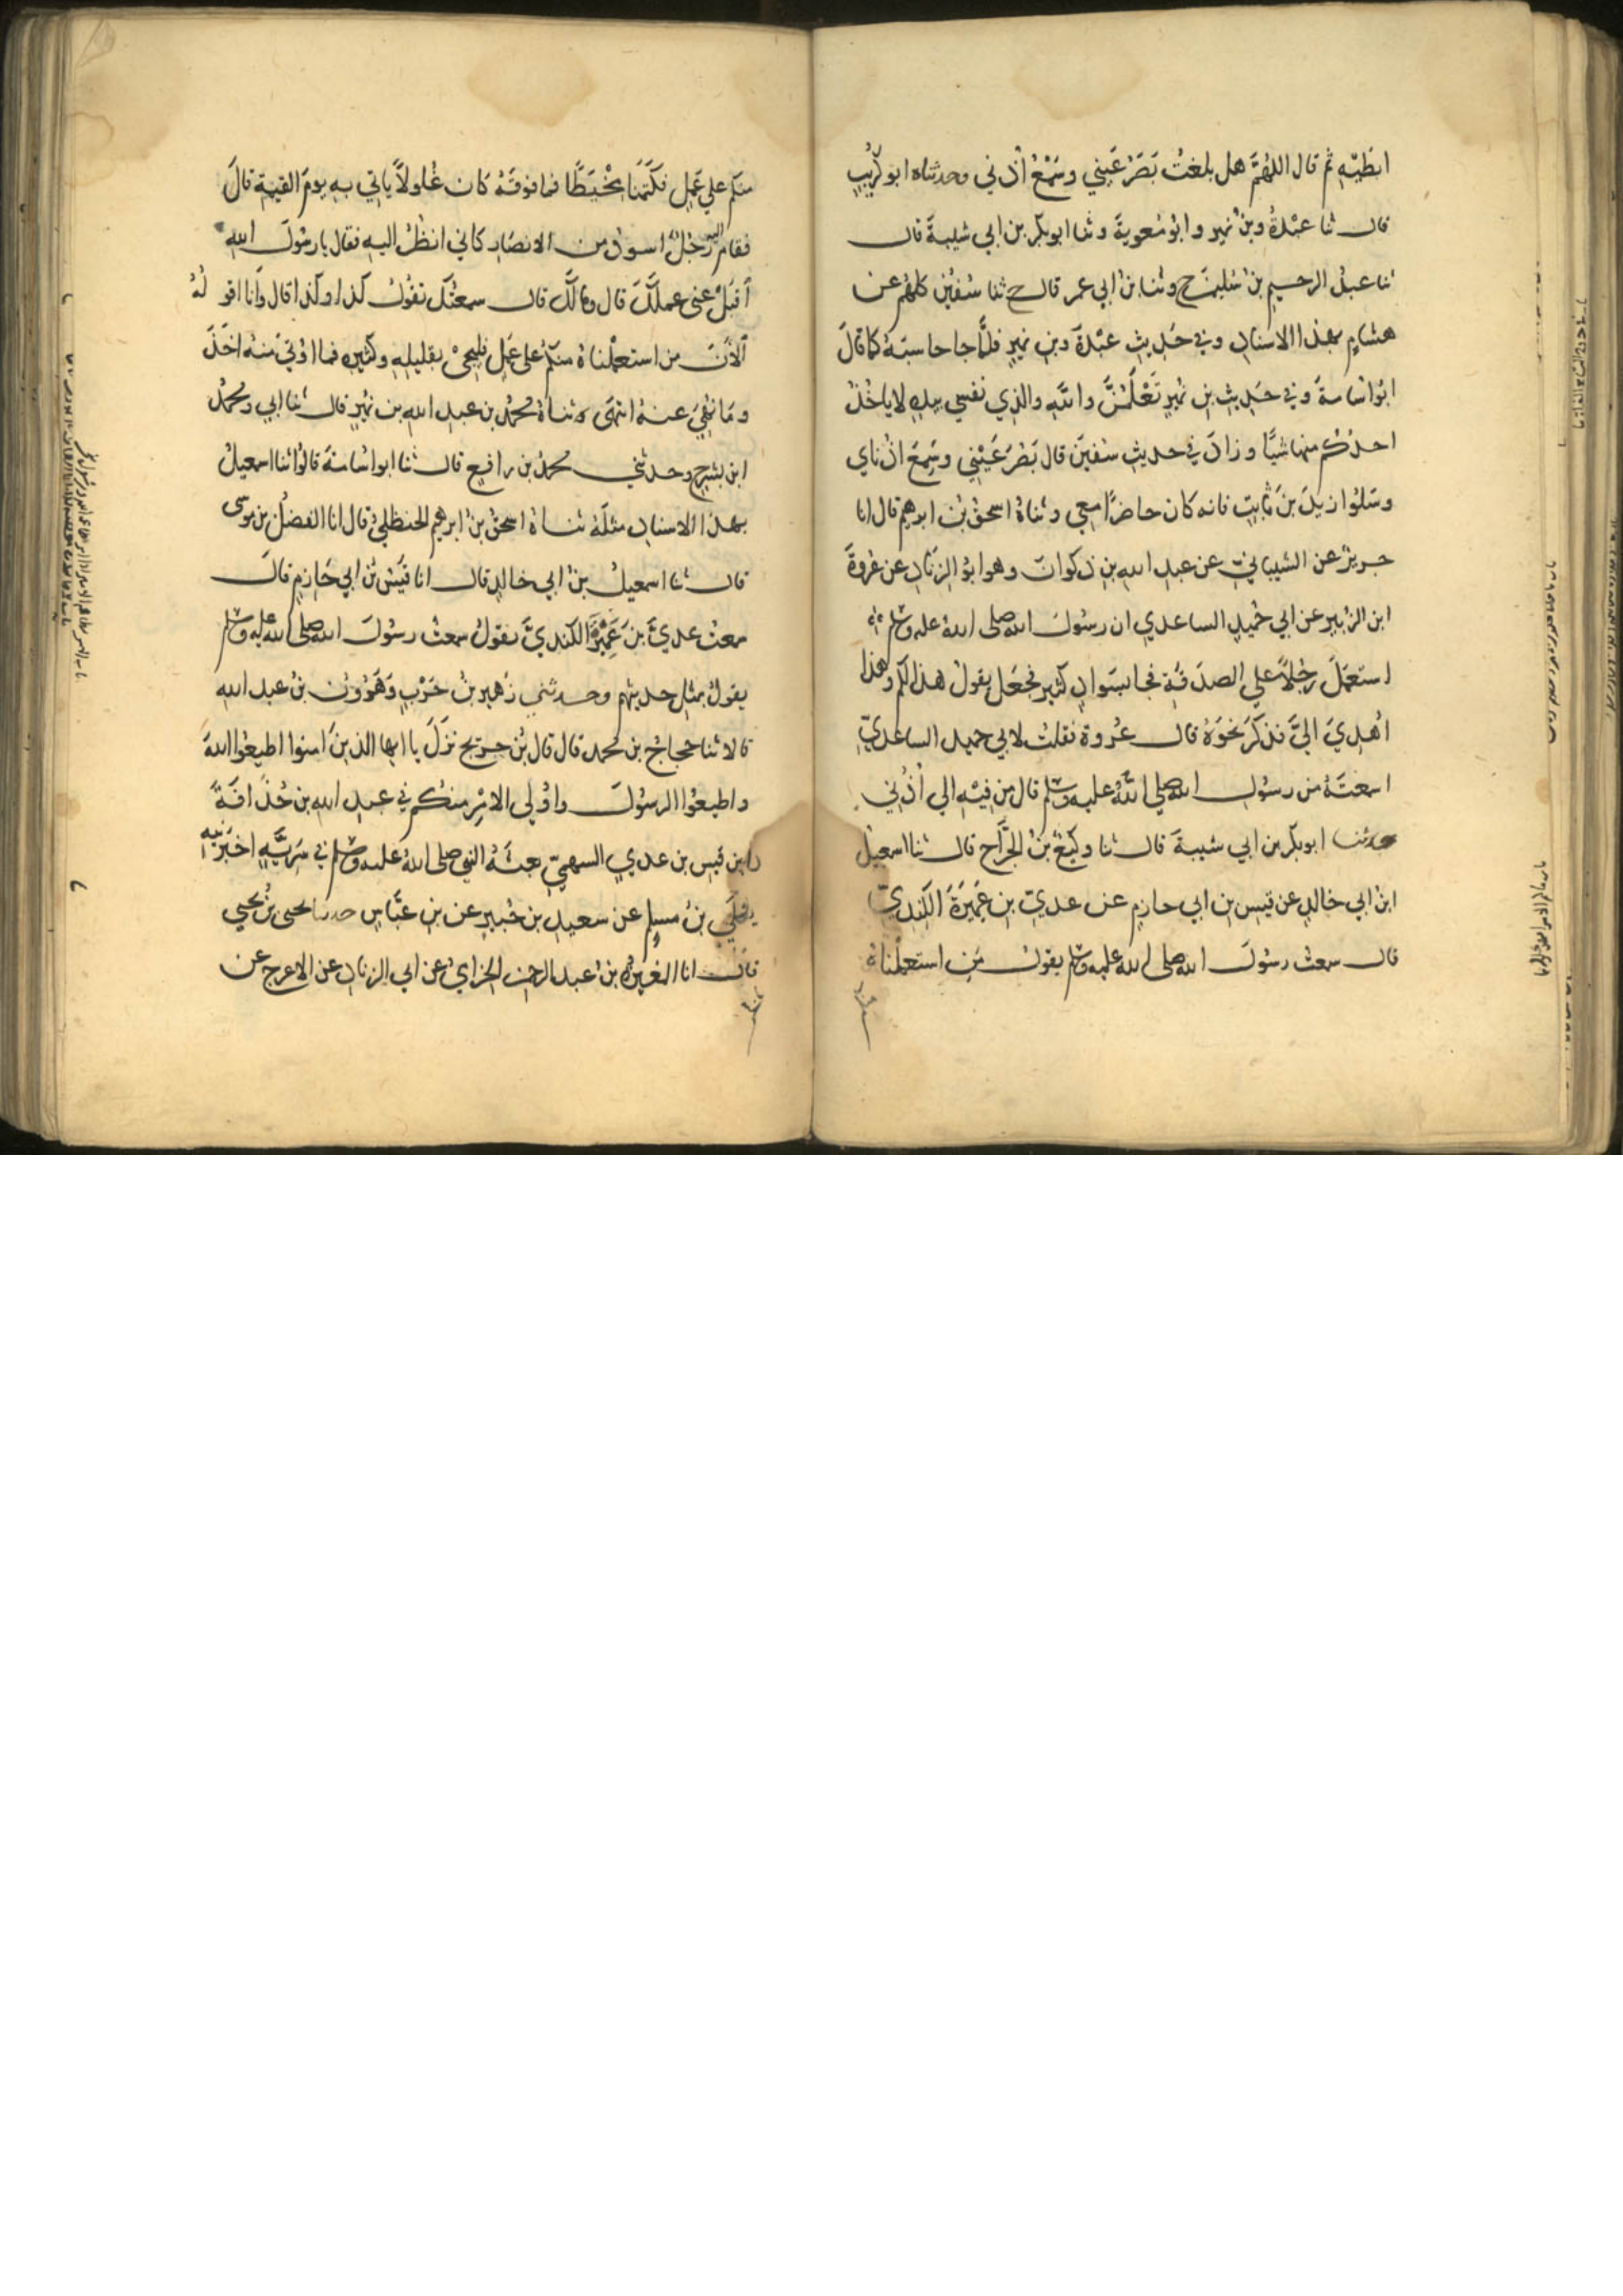 ابطَيْهِ ثم قال اللهُمَّ هل بلغتُ بَصَرُ عَيْني وسَمْعُ أُذُني وحدثناه ابو كُرَيْبٍ
قال ثنا عبْدةُ وبنُ نُمير وابوُ مُعوِيةَ وثنا ابو بكر بن ابي شيبةَ قال
ثنا عبدُ الرحيم بنُ سُليمنَ ح وثنا بنُ ابي عمر قال ح ثنا سُفيٰن كلهُم عن
هشامٍ بهذا الاسنادِ وفي حَدِيثِ عبْدةَ وبن نُميرٍ فلمَّا جا حاسَبَهُ كما قالَ
ابُو اُسَامةَ وفي حَدِيثِ بن نُميرٍ تَعْلَمُنَّ واللهِ والذي نفسي بيدِهِ لا ياخُذُ
احدُكُم منها شيًا وزادَ في حديثِ سُفينَ قال بَصُرَ عَيْني وسَمِعَ اذُناي
وسَلُوا زيدَ بنَ ثابتٍ فانه كان حاضرًا معي وثناهُ اسحقُ بنُ ابرهيم قال انا
جريرٌ عن الشيبانيّ عن عبد اللهِ بن ذكوانَ وهو ابوُ الزِنادِ عن عُروةَ
ابن الزُبيرِ عن ابي حُميدٍ الساعدي ان رسُولَ الله صلى اللهُ عليه وسلم
استعمَلَ رجُلاً علي الصدَقةِ فجا بسَوادٍ كثيرٍ فجعَل يقولُ هذا لكم وهذا
اُهْدِيَ اليَّ فذكَرَ نحوَهُ قال عُروة فقلتُ لابي حميد الساعديِّ
اسمعتَهُ من رسُولِ الله صلى اللهُ عليه وسلم قال مِن فِيْهِ الي اُذُني
حدثنا ابو بكر بن ابي شيبةَ قال ثنا وكيعُ بنُ الجرَّاحِ قال ثنا اسمعيلُ
ابنُ ابي خالدٍ عن قيسِ بن ابي حازمٍ عن عديّ بن عَمِيَرةَ الكِنديِّ
قال سمعتُ رسُولَ الله صلى الله عليه وسلم يقولُ مَنِ استعمَلْناهُ
منكم علي عَمَلٍ فكَتَمَنا مِخْيَطًا فما فوقَهُ كان غُلولاً ياتي به يومَ القيمةِ قالَ
فقام اليه رَجُلٌ اسودُ من الانصارِ كاني انظُرُ اليهِ فقال يا رسُولَ اللهِ
اَقبَلْ عني عملَكَ قال ومالَكَ قال سمعتُكَ تقُولُ كذا وكذا قال وَانا اقولُهُ
اَلْاٰنَ من استعمَلْناهُ منكُم علي عَمَلٍ فليجيْ بقليلِهِ وكثيرِهِ فما اوُتيَ منه اخَذَ
وما نُهيَ عنهُ انتهَى وثناهُ محمَّدُ بن عبد اللهِ بن نُمَيْرٍ قال ثنا ابي ومحمَّدُ
ابن بشر ح وحدثني محمدُ بن رافعٍ قال ثنا ابو اسُامةَ قالوُا ثنا اسمعيلُ
بهذا الاسنادِ مثلَهُ ثناهُ اسحقُ بنُ ابرهيم الحنظليُّ قال انا الفضلُ بن موسى
قال ثنا اسمعيلُ بنُ ابي خالدٍ قال انا قيْسُ بنُ ابي حازمٍ قالَ
سمعتُ عديَّ بنَ عَمِيْرَةَ الكنديَّ يقولُ سمعتُ رسُولَ الله صلى الله عليه وسلم
يقولُ بمثلِ حديثِهِم وحدثني زُهيرُ بنُ حَرْبٍ وَهٰرُونُ بنُ عبد اللهِ
قالا ثنا حجاجُ بن محمد قال قال بنُ جريج نزَلَ يا ايها الذينَ امنوا اطيعُوا اللهَ
واطيعُوا الرسُولَ واوُلي الامْرِ منكُم في عبدِ اللهِ بن حُذَافَةَ
بن قيسِ بن عديٍ السهميّ بعثَهُ النبي صلى اللهُ عليه وسلم في سَرِيَّةٍ اخبَرَنيهِ
يعلَي بنُ مسلِمٍ عن سعيدِ بن جُبيرٍ عن بن عبَّاسٍ حدثنا يحيى بنُ يحيي
قال انا المغيرةُ بنُ عبد الرحمن الحِزاميُّ عن ابي الزنادِ عن الاعرج عن